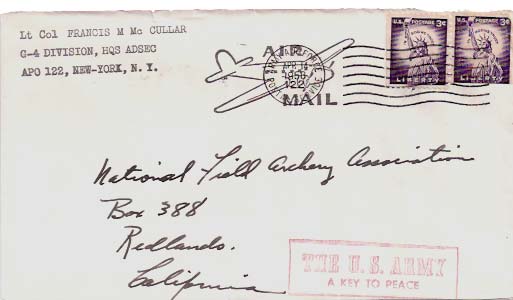 Lt Col FRANCIS M Mc CULLAR
G-4 DIVISION, HQS ADSEC
APO 122, NEW-YORK, N. Y.
AIR
MAIL
APR 14
1956
122
U.S. POSTAGE 3¢
LIBERTY
U.S. POSTAGE 3¢
LIBERTY
National Field Archery Association
Box 388
Redlands.
California
THE U. S. ARMY
A KEY TO PEACE